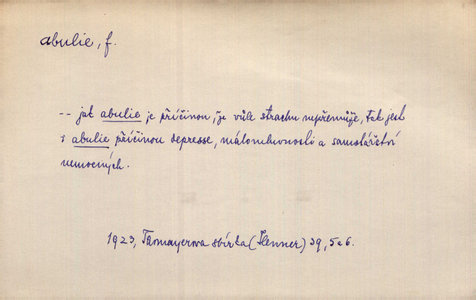 abulie, f.
-- jak abulie je příčinou, že vůle strachu nepřemůže, tak jest
i abulie příčinou depresse, málomluvnosti a samotářství
nemocných.
1923, Thomayerova sbírka (Henner) 39, 5 a 6.